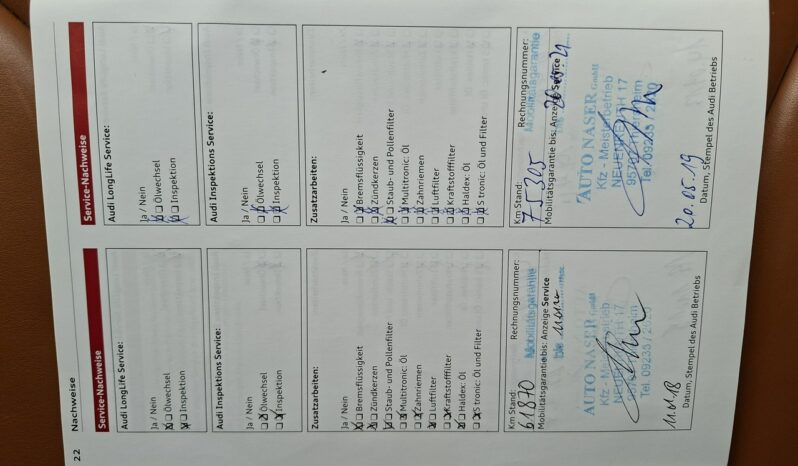 22
Nachweise
Service-Nachweise
Audi LongLife Service:
Ja / Nein
Ölwechsel
Inspektion
Audi Inspektions Service:
Ja / Nein
Ölwechsel
Inspektion
Zusatzarbeiten:
Ja / Nein
Bremsflüssigkeit
Zündkerzen
Staub- und Pollenfilter
Multitronic: Öl
Zahnriemen
Luftfilter
Kraftstofffilter
Haldex: Öl
S tronic: Öl und Filter
Km Stand: Rechnungsnummer:
61870 Mobilitätsgarantie
Mobilitätsgarantie bis: Anzeige Service
bis
AUTO NASER GmbH
Kfz - Meisterbetrieb
11.01.18
Datum, Stempel des Audi Betriebs
Service-Nachweise
Audi LongLife Service:
Ja / Nein
Ölwechsel
Inspektion
Audi Inspektions Service:
Ja / Nein
Ölwechsel
Inspektion
Zusatzarbeiten:
Ja / Nein
Bremsflüssigkeit
Zündkerzen
Staub- und Pollenfilter
Multitronic: Öl
Zahnriemen
Luftfilter
Kraftstofffilter
Haldex: Öl
S tronic: Öl und Filter
Km Stand: Rechnungsnummer:
75305 Mobilitätsgarantie
Mobilitätsgarantie bis: Anzeige Service
bis
AUTO NASER GmbH
Kfz - Meisterbetrieb
20.05.19
Datum, Stempel des Audi Betriebs